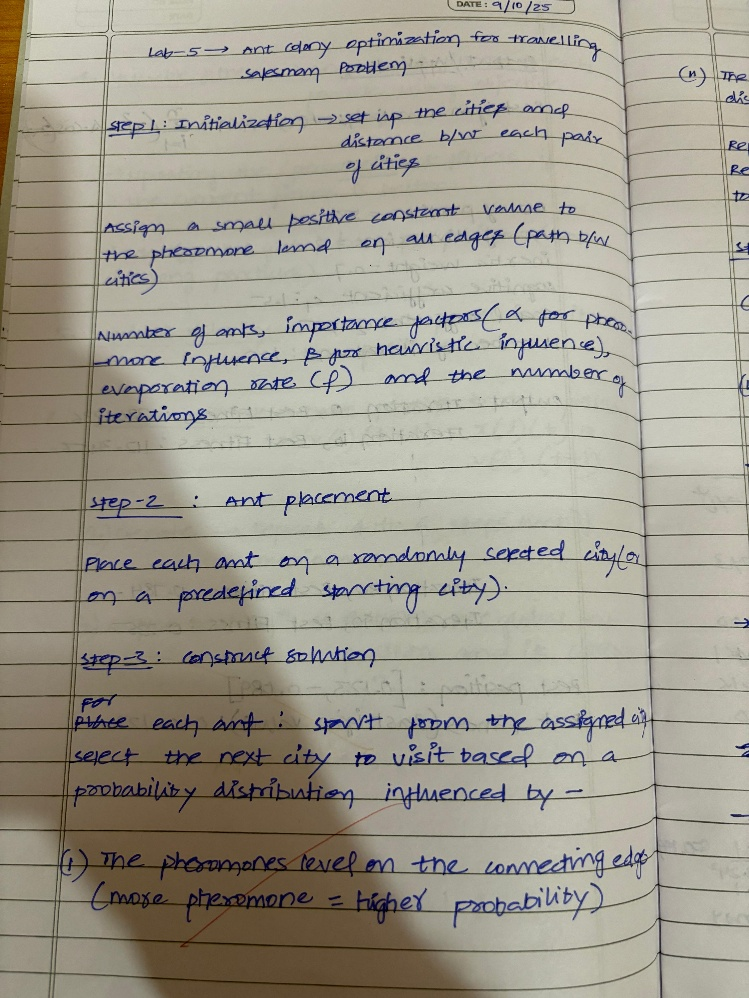 DATE: 9/10/25
Lab-5 → Ant colony optimization for travelling
salesman Problem
Step 1: Initialization → set up the cities and
distance b/w each pair
of cities
Assign a small positive constant value to
the pheromone level on all edges (path b/w
cities)
Number of ants, importance factors (α for phero-
-mone influence, β for heuristic influence),
evaporation rate (ρ) and the number of
iterations
Step-2 : Ant placement
Place each ant on a randomly selected city (or
on a predefined starting city).
Step-3 : construct solution
For
Place each ant : start from the assigned city
select the next city to visit based on a
probability distribution influenced by -
(i) The pheromones level on the connecting edge
(more pheromone = higher probability)
(ii) The
dis
Re
to